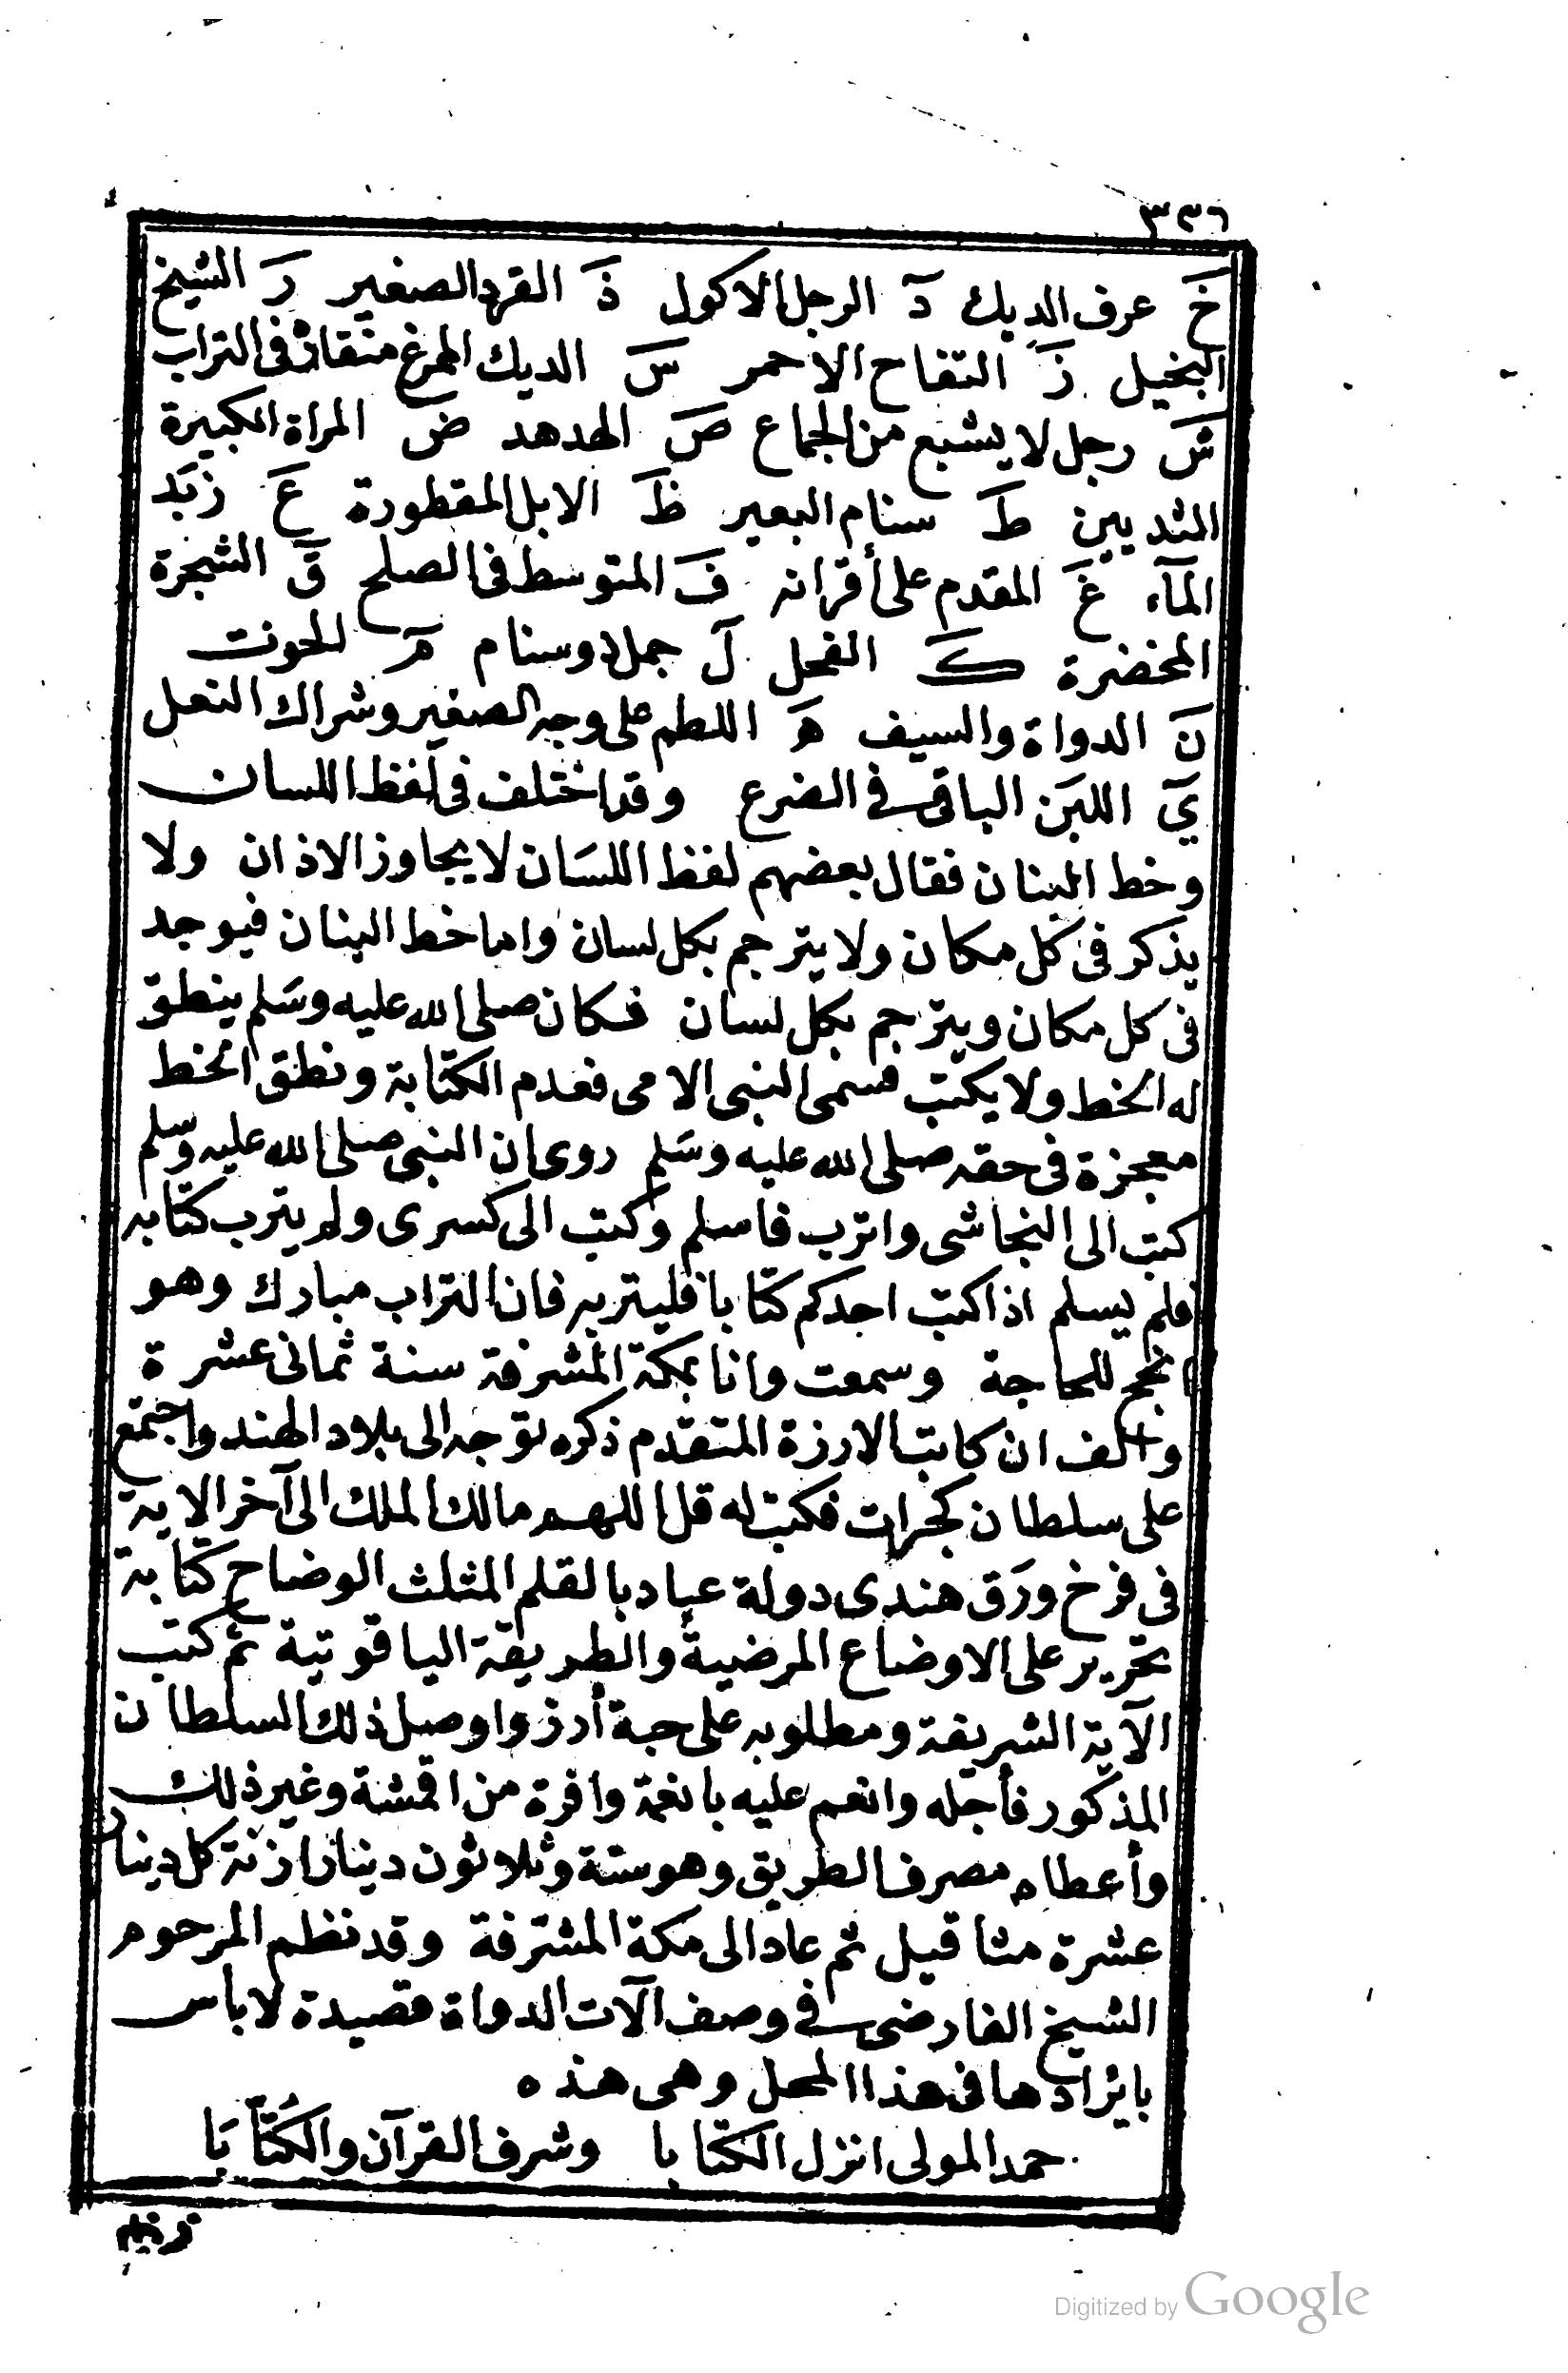 ٣٢٦
خَ عرف الديك دَ الرجل الاكول ذَ القرد الصغير رَ الشيخ
البخيل زَ التفاح الاحمر سَ الديك الممرغ منقاره فى التراب
شَ رجل لا يشبع من الجماع صَ الهدهد ضَ المراة الكبيرة
الثديين طَ سنام البعير ظَ الابل المقطورة عَ زبَد
المآء غَ المقدم على أقرانه فَ المتوسط فى الصلح قَ الشجرة
المخضرة كَ الفحل لَ جمل ذو سنام مَ الحوت
نَ الدواة والسيف هَ اللطم على وجه الصغير وشراك النعل
يَ اللبَن الباقى فى الضرع وقد اختلف فى لفظ اللسان
وخط البنان فقال بعضهم لفظ اللسَان لا يجاوز الاذان ولا
يذكر فى كل مكان ولا يترجم بكل لسان واما خط البنان فيوجد
فى كل مكان ويترجم بكل لسان فكان صلى الله عليه وسَلم ينطق
له الخط ولا يكتب فسمى النبى الامى فعدم الكتابة ونطق الخط
معجزة فى حقه صلى الله عليه وسَلم روى ان النبى صلى الله عليه وسلم
كتب الى النجاشى واترب فاسلم وكتب الى كسرى ولم يترب كتابه
فلم يسلم اذا كتب احدكم كتابا فليتربه فان التراب مبارك وهو
انجح للحاجة وسمعت وانا بمكة المشرفة سنة ثمانى عشرة
والف ان كاتب الارزة المتقدم ذكره توجه الى بلاد الهند واجتمع
على سلطان كجرات فكتب له قل اللهم مالك الملك الى آخر الاية
فى فرخ ورَق هندى دولة عباد بالقلم المثلث الوضاح كتابة
تحرير على الاوضاع المرضية والطريقة الياقوتية ثم كتب
الآية الشريفة ومطلوبه على حبة أرز واوصل ذلك السلطان
المذكور فأجله وانعم عليه بانعمة وافرة من اقمشة وغير ذلك
وأعطاه مصرف الطريق وهو ستة وثلاثون دينارا زنة كل دينار
عشرة مثاقيل ثم عاد الى مكة المشرّفة وقد نظم المرحوم
الشيخ الفارضى فى وصف آلات الدواة قصيدة لا باس
بايرادها فى هذا المحل وهى هذه
حمد المولى انزل الكتابا وشرف القرآن والكُتّابَا
Digitized by Google